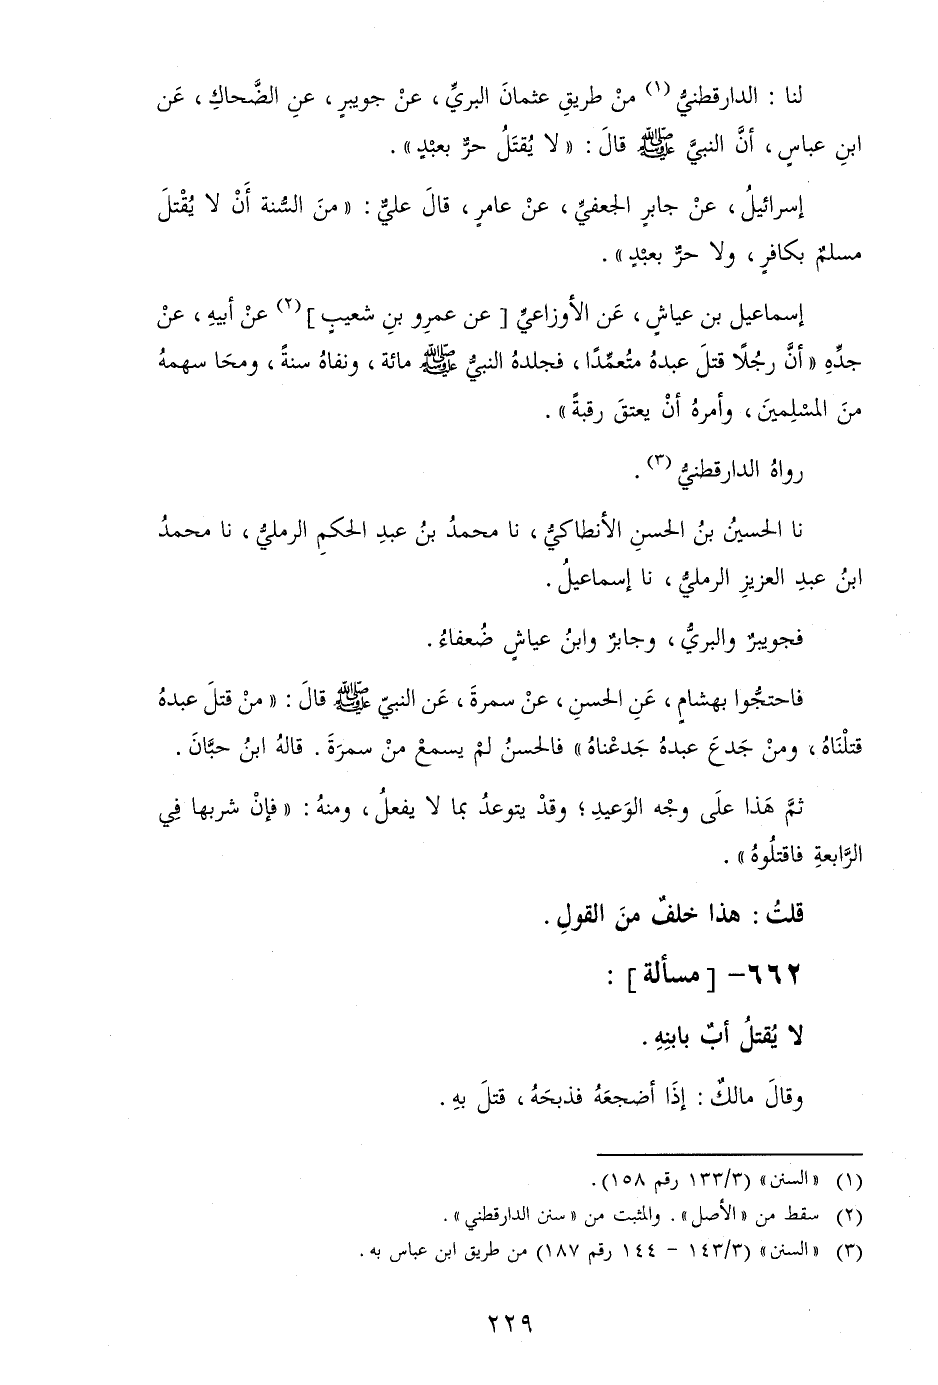 لنا : الدارقطنيُّ (١) منْ طريقِ عثمانَ البريِّ ، عنْ جويبرٍ ، عنِ الضَّحاكِ ، عَن
ابنِ عباسٍ ، أنَّ النبيَّ ﷺ قالَ : « لا يُقتَلُ حرٌّ بعبْدٍ » .
إسرائيلُ ، عنْ جابرٍ الجعفيِّ ، عنْ عامرٍ ، قالَ عليٌّ : « منَ السُّنة أَنْ لا يُقْتلَ
مسلمٌ بكافرٍ ، ولا حرٌّ بعبْدٍ » .
إسماعيل بن عياشٍ ، عَن الأوزاعيِّ [ عن عمرِو بنِ شعيبٍ ] (٢) عنْ أبيهِ ، عنْ
جدِّهِ « أنَّ رجُلًا قتلَ عبدهُ متُعمِّدًا ، فجلدهُ النبيُّ ﷺ مائة ، ونفاهُ سنةً ، ومحَا سهمهُ
منَ المسْلِمينَ ، وأمرهُ أنْ يعتقَ رقبةً » .
رواهُ الدارقطنيُّ (٣) .
نا الحسينُ بنُ الحسنِ الأنطاكيُّ ، نا محمدُ بنُ عبدِ الحكمِ الرمليُّ ، نا محمدُ
ابنُ عبدِ العزيزِ الرمليُّ ، نا إسماعيلُ .
فجويبرٌ والبريُّ ، وجابرٌ وابنُ عياشٍ ضُعفاءُ .
فاحتجُّوا بهشامٍ ، عَنِ الحسنِ ، عنْ سمرةَ ، عَن النبيّ ﷺ قالَ : « منْ قتلَ عبدهُ
قتلْنَاهُ ، ومنْ جَدعَ عبدهُ جَدعْناهُ » فالحسنُ لمْ يسمعْ منْ سمرَةَ . قالهُ ابنُ حبَّانَ .
ثمَّ هَذا علَى وجْه الوَعيدِ ؛ وقدْ يتوعدُ بما لا يفعلُ ، ومنهُ : « فإنْ شربها فِي
الرَّابعةِ فاقتلُوهُ » .
قلتُ : هذا خلفٌ منَ القولِ .
٦٦٢- [ مسألة ] :
لا يُقتلُ أبٌ بابنِهِ .
وقالَ مالكٌ : إذَا أضجعَهُ فذبحَهُ ، قتلَ بهِ .
(١) «السنن» (١٣٣/٣ رقم ١٥٨).
(٢) سقط من «الأصل» . والمثبت من «سنن الدارقطني» .
(٣) «السنن» (١٤٣/٣ – ١٤٤ رقم ١٨٧) من طريق ابن عباس به .
٢٢٩